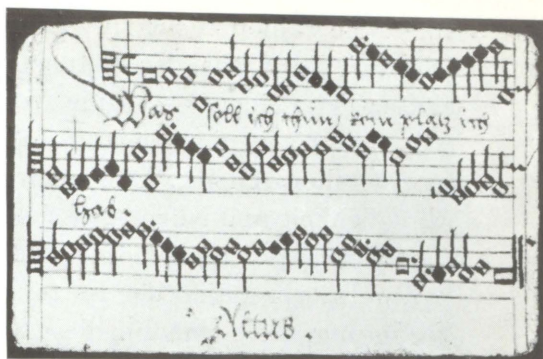 Was soll ich thun, kein platz ich
hab.
Altus